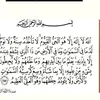 بسم الله الرحمن الرحيم
الله لا إله إلا هو الحي القيوم لا تأخذه سنة ولا نوم
له ما في السموات وما في الأرض من ذا الذي يشفع عنده
إلا بإذنه يعلم ما بين أيديهم وما خلفهم ولا يحيطون
بشيء من علمه إلا بما شاء وسع كرسيه السموات
والأرض ولا يؤده حفظهما وهو العلي العظيم